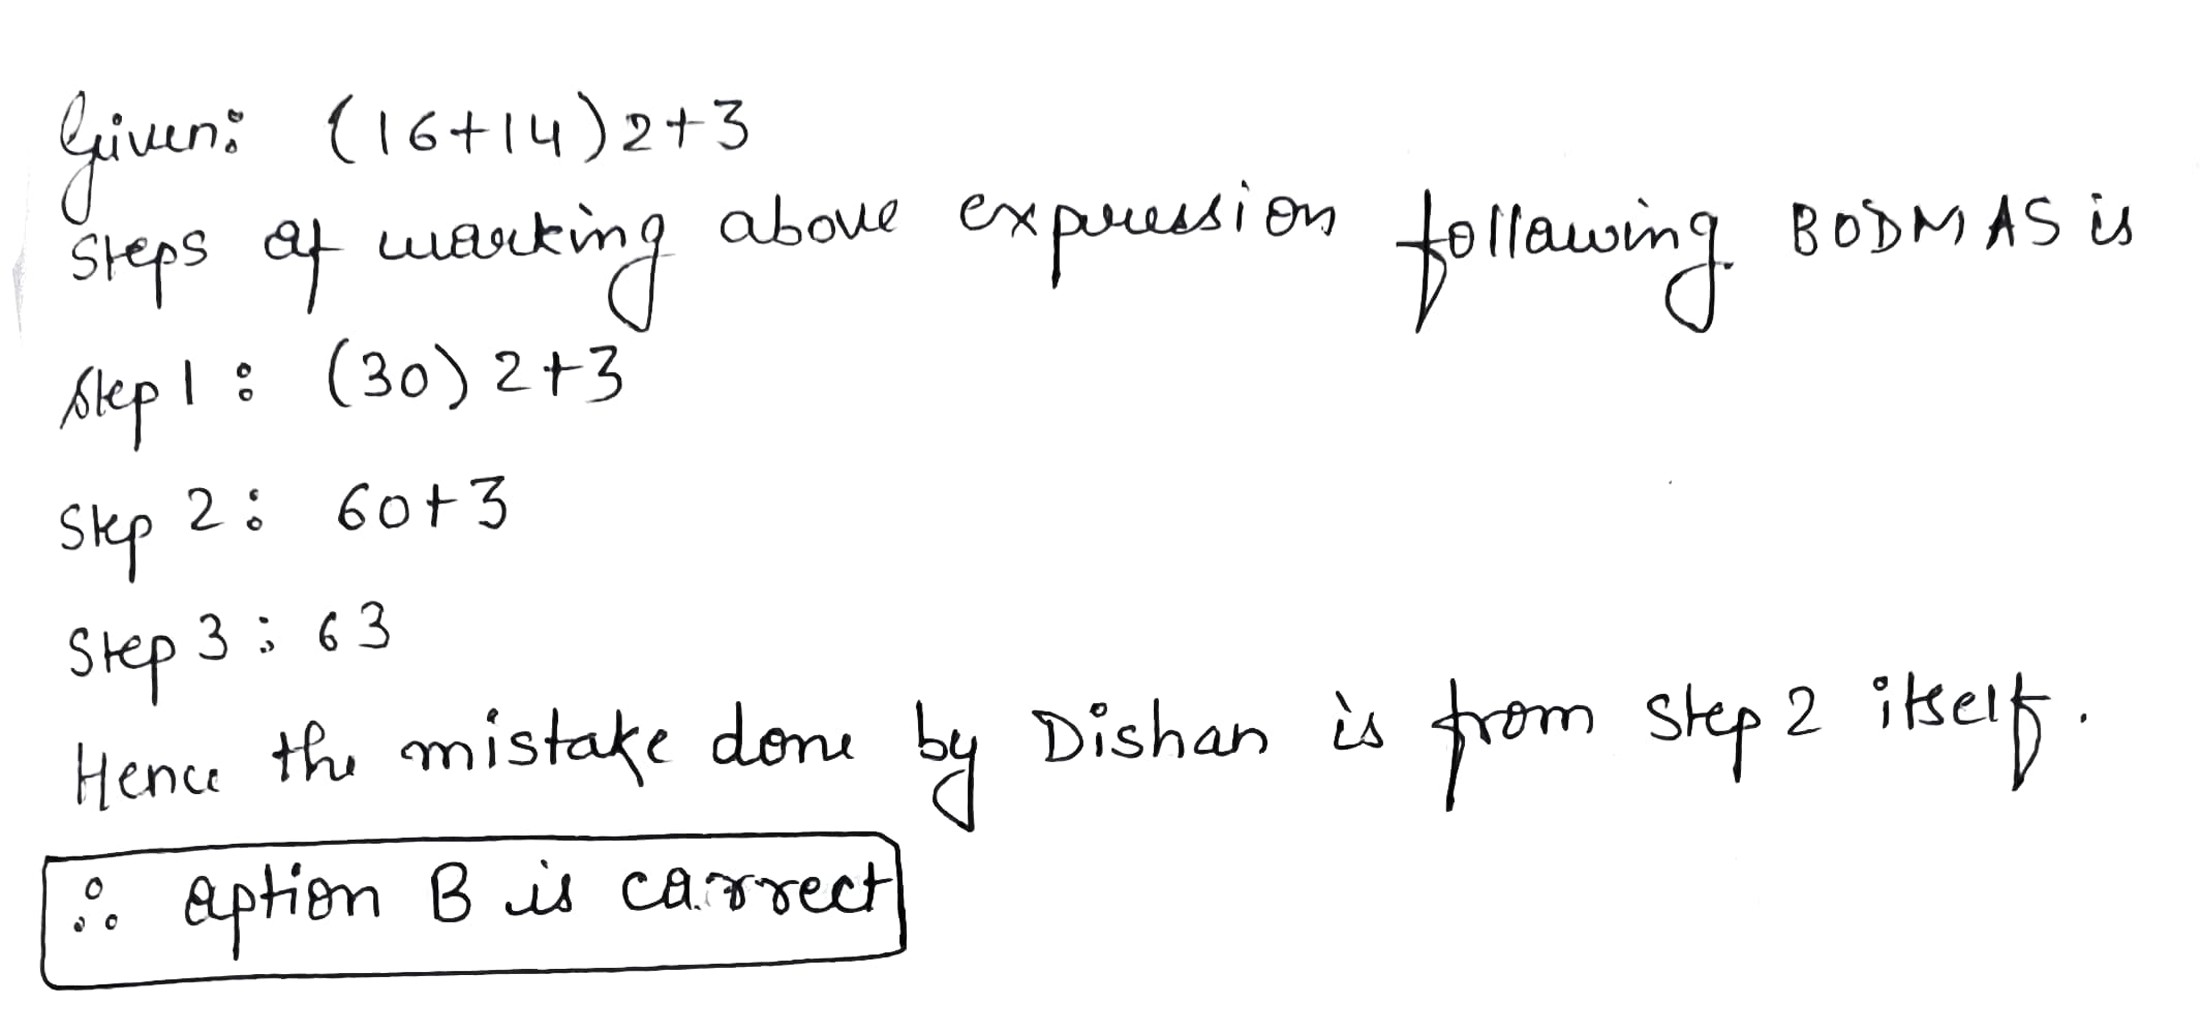 Given: (16+14)2+3
Steps of working above expression following BODMAS is
Step 1 : (30) 2+3
Step 2 : 60+3
Step 3 : 63
Hence the mistake done by Dishan is from step 2 itself.
∴ option B is correct